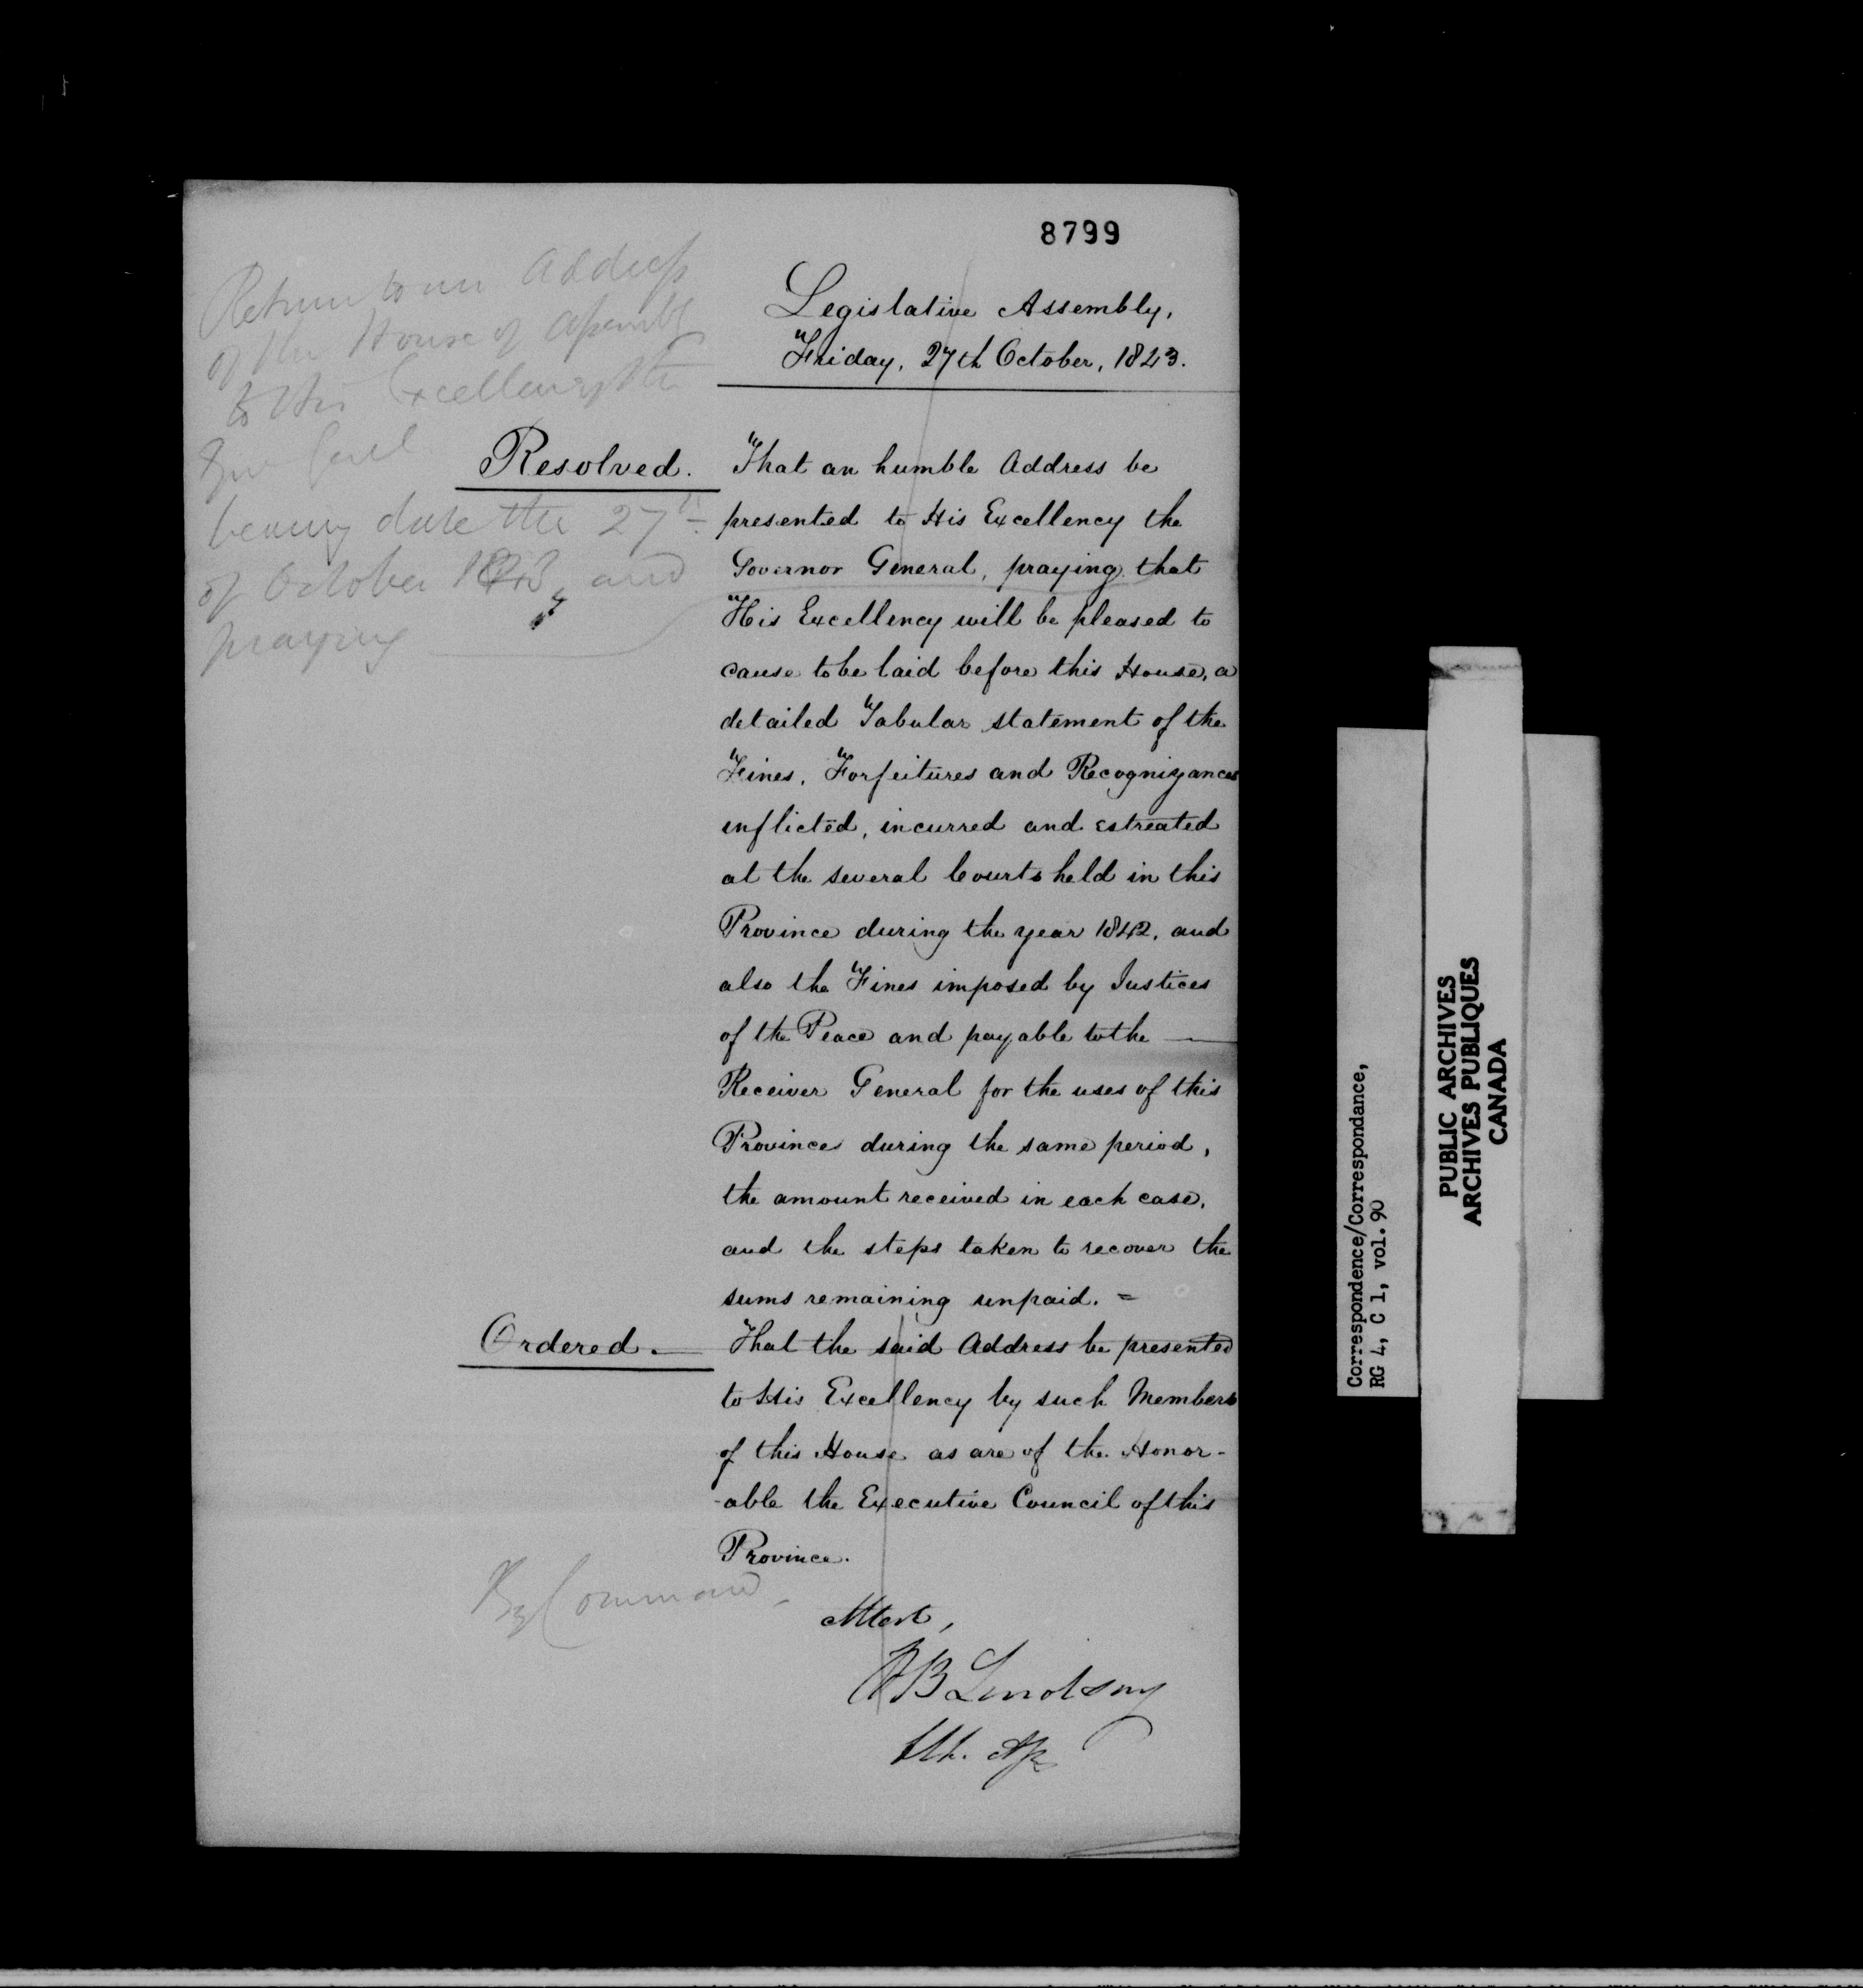 8799
Legislative Assembly,
Friday, 27th October, 1843.
Return to an Address
of the House of Assembl
to His Excellency the
Gov Genl
bearing date the 27th
of October 1843, and
praying
Resolved. That an humble Address be
presented to His Excellency the
Governor General, praying that
His Excellency will be pleased to
cause to be laid before this House, a
detailed Tabular statement of the
Fines, Forfeitures and Recognizances
inflicted, incurred and estreated
at the several Courts held in this
Province during the year 1842, and
also the Fines imposed by Justices
of the Peace and payable to the —
Receiver General for the uses of this
Province during the same period,
the amount received in each case,
and the steps taken to recover the
sums remaining unpaid. =
Ordered. — That the said Address be presented
to His Excellency by such Members
of this House as are of the Honor-
-able the Executive Council of this
Province.
By Command -
Attest,
W B Lindsay
Clk. Ass
Correspondence/Correspondance,
RG 4, C 1, vol. 90
PUBLIC ARCHIVES
ARCHIVES PUBLIQUES
CANADA